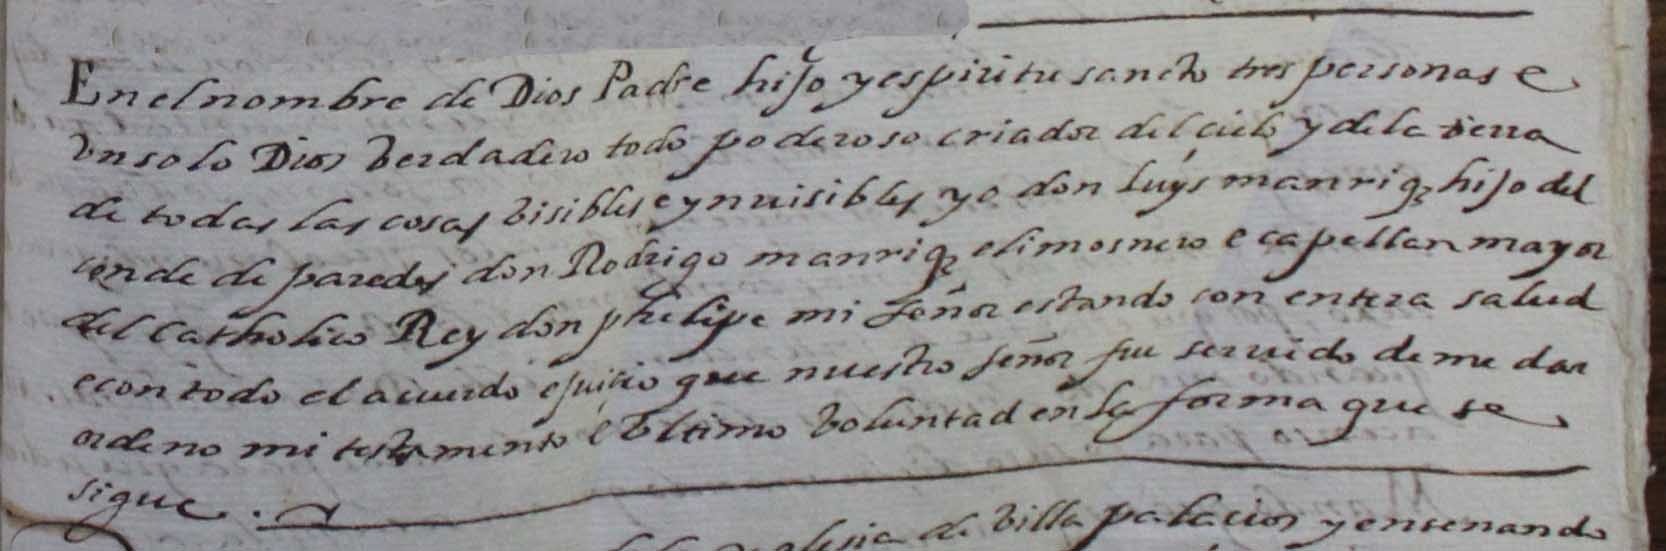 En el nombre de Dios Padre hijo y espiritu sancto tres personas e
vn solo Dios berdadero todo poderoso criador del cielo y de la tierra
de todas las cosas bisibles e ynuisibles yo don luys manriq hijo del
conde de paredes don Rodrigo manriq elimosnero e capellan mayor
del catholico Rey don phelipe mi señor estando con entera salud
e con todo el acuerdo e juiçio que nuestro señor fue seruido de me dar
ordeno mi testamento e vltima voluntad en la forma que se
sigue.
yglesia de billa palacios y ensenando